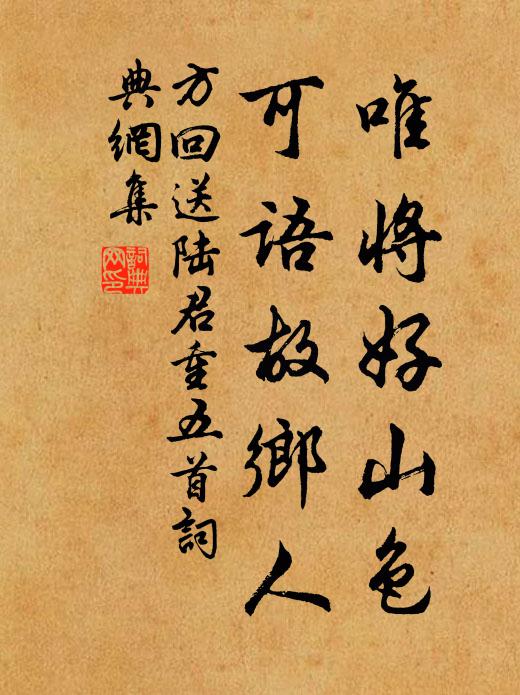 唯將好山色
可語故鄉人
方回送陆君重五首詞
典網集
詞典
网印